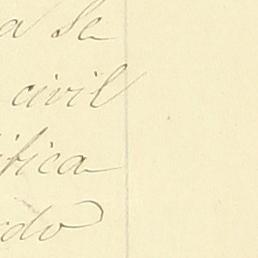 a se
civil
ifica
do